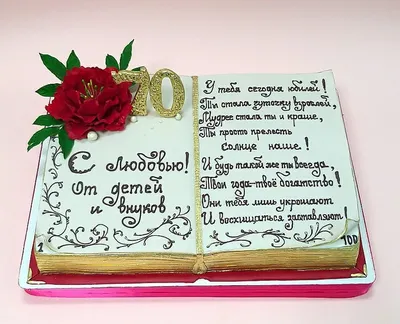 70
С любовью!
От детей
и
внуков
1
У тебя сегодня юбилей!
Ты стала чуточку взрослей,
Мудрее стала ты и краше,
Ты просто прелесть
солнце наше!
И будь такой же ты всегда,
Твои года-твоё богатство!
Они тебя лишь украшают
И восхищаться заставляют!
100